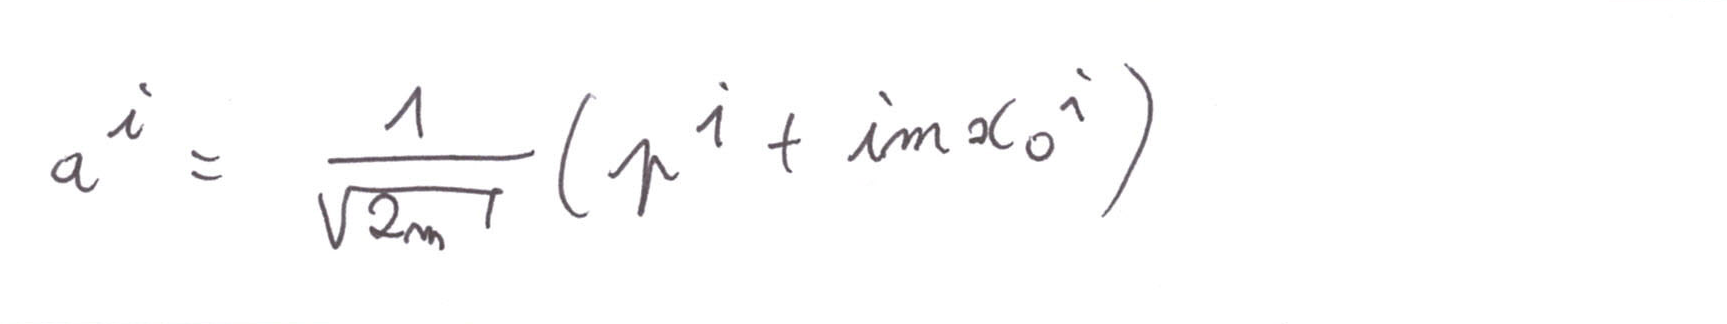 a^i = \frac{1}{\sqrt{2m}} (p^i + imx_0^i)